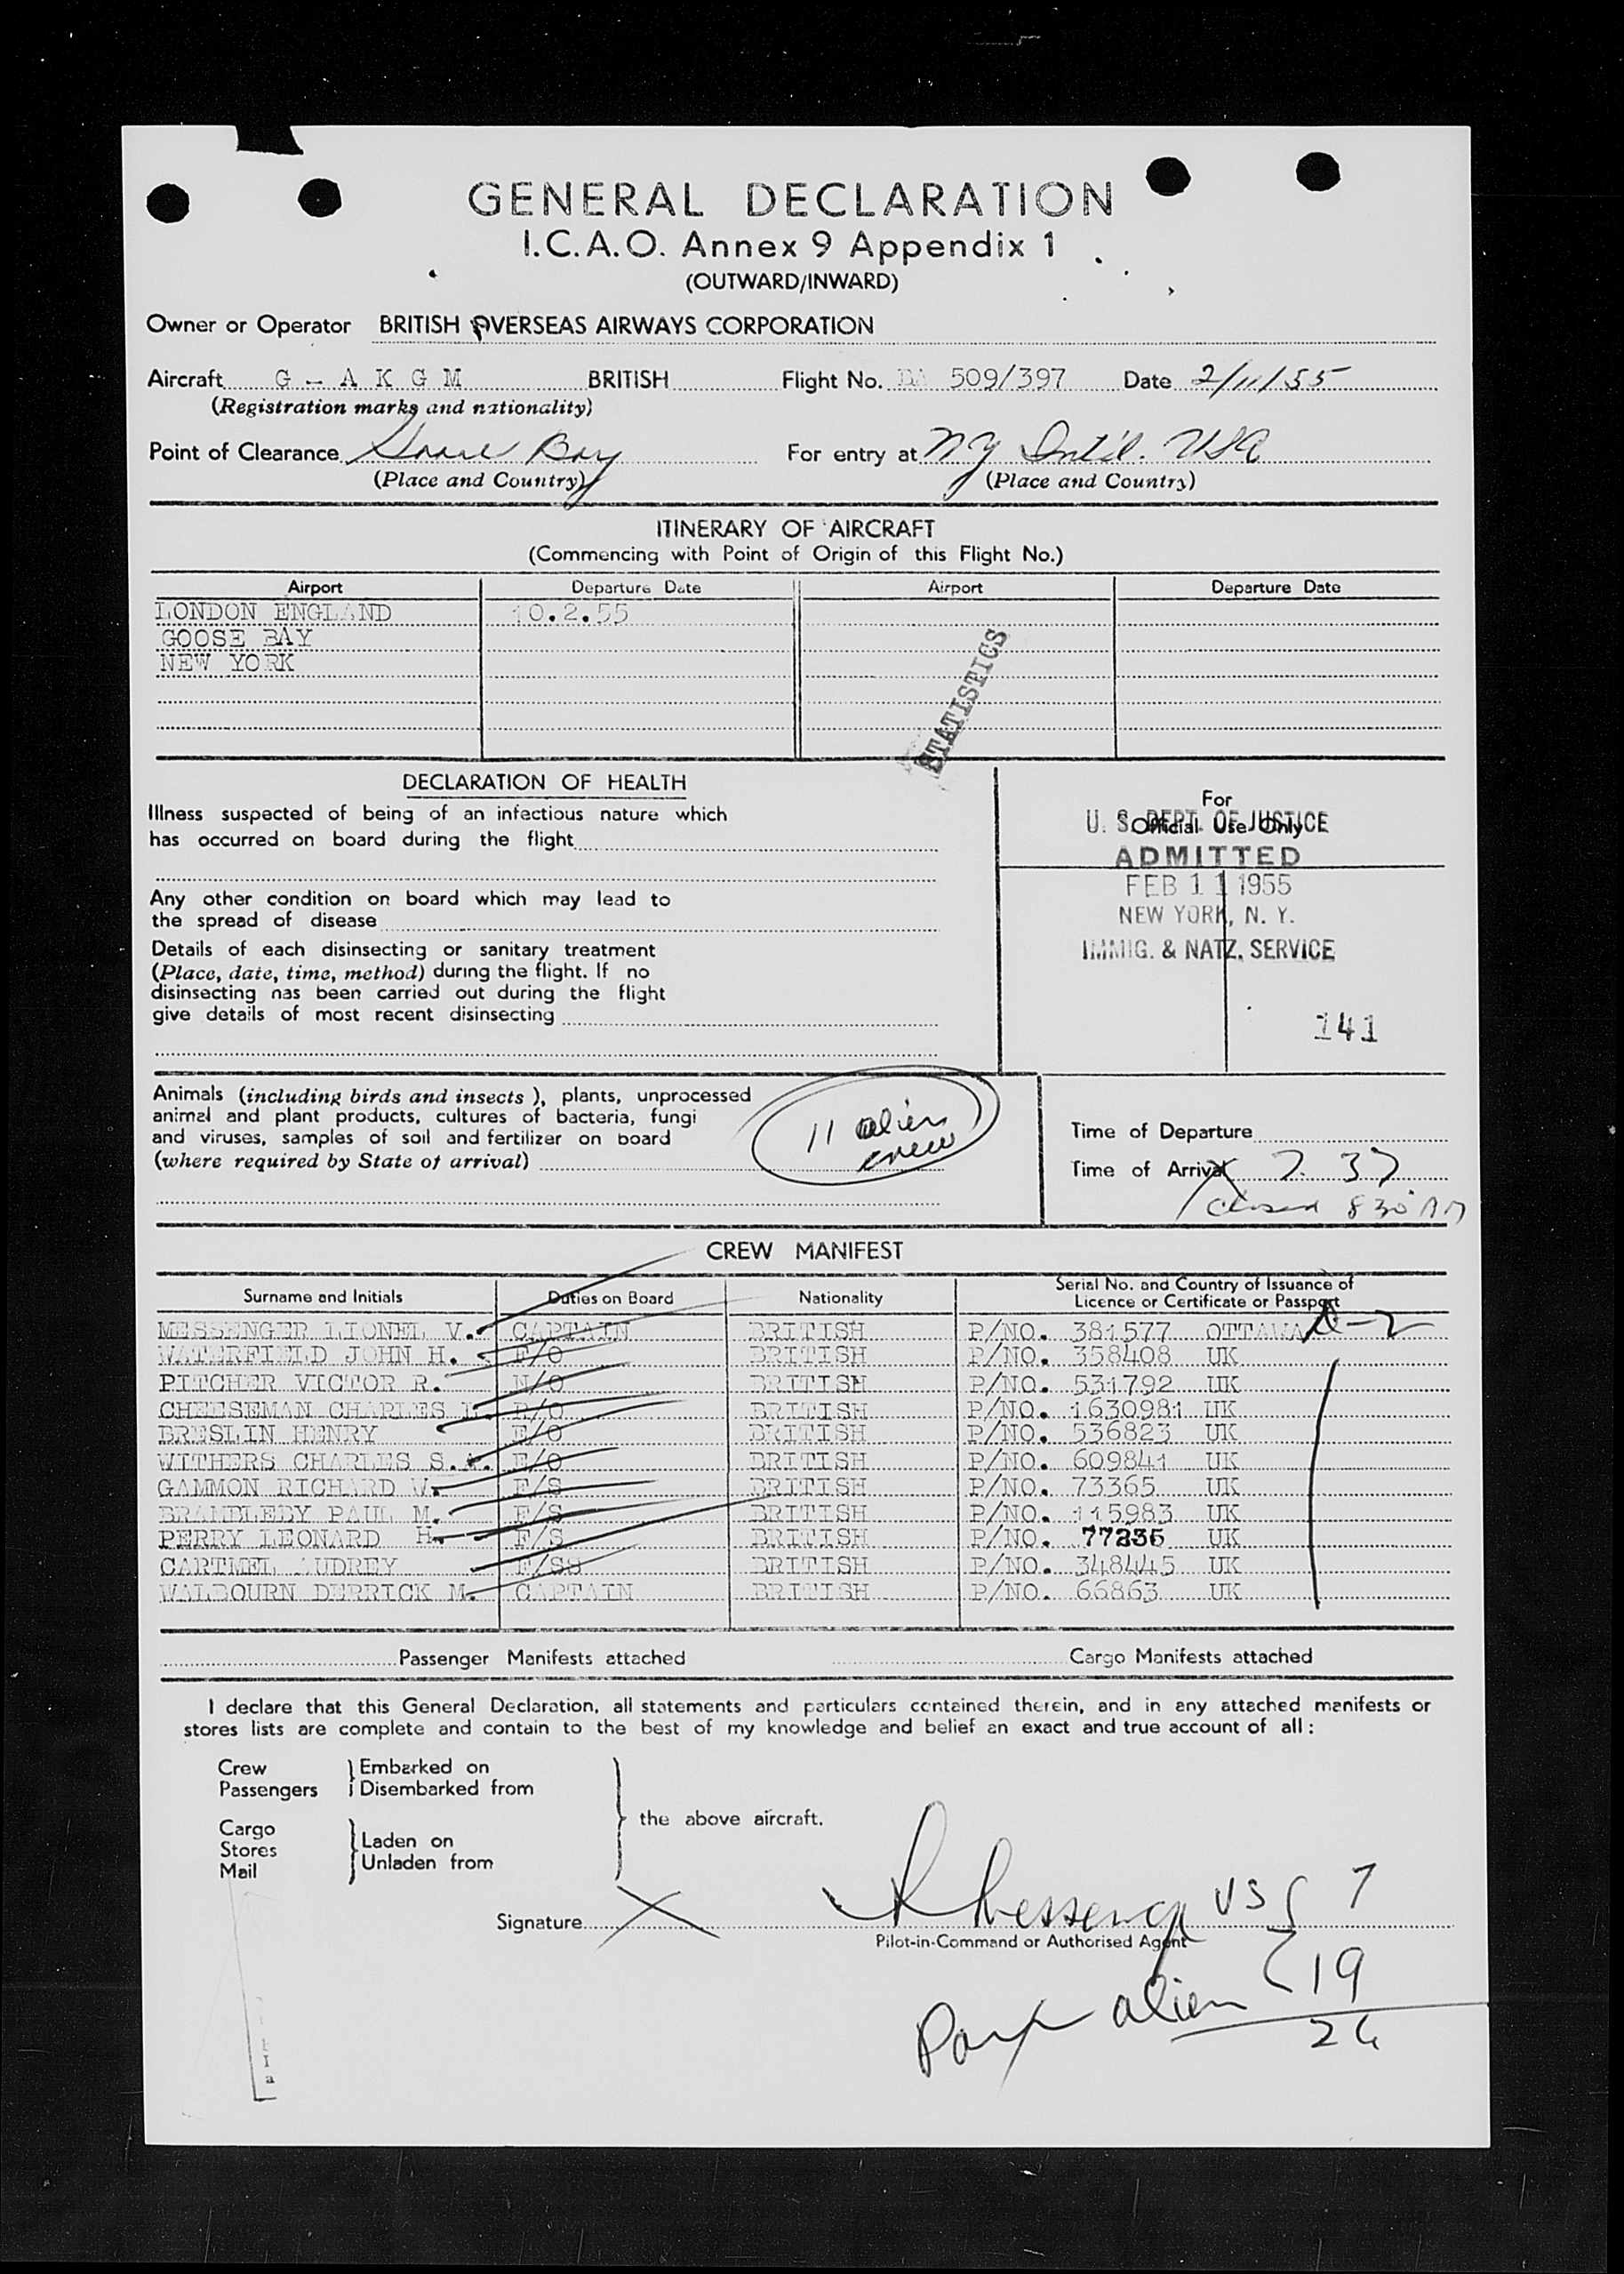 GENERAL DECLARATION
I.C.A.O. Annex 9 Appendix 1
(OUTWARD/INWARD)
Owner or Operator BRITISH OVERSEAS AIRWAYS CORPORATION
Aircraft G - A K G M BRITISH Flight No. BA 509/397 Date 2/11/55
(Registration marks and nationality)
Point of Clearance Goose Bay For entry at NY Int'l. USA
(Place and Country) (Place and Country)
ITINERARY OF AIRCRAFT
(Commencing with Point of Origin of this Flight No.)
Airport Departure Date Airport Departure Date
LONDON ENGLAND 10.2.55
GOOSE BAY
NEW YORK
STATISTICS
DECLARATION OF HEALTH
Illness suspected of being of an infectious nature which
has occurred on board during the flight
Any other condition on board which may lead to
the spread of disease
Details of each disinsecting or sanitary treatment
(Place, date, time, method) during the flight. If no
disinsecting has been carried out during the flight
give details of most recent disinsecting
For
Official Use Only
U. S. DEPT. OF JUSTICE
ADMITTED
FEB 11 1955
NEW YORK, N. Y.
IMMIG. & NATZ. SERVICE
141
Animals (including birds and insects), plants, unprocessed
animal and plant products, cultures of bacteria, fungi
and viruses, samples of soil and fertilizer on board
(where required by State of arrival)
11 alien
crew
Time of Departure
Time of Arrival 7.37
closed 830 AM
CREW MANIFEST
Surname and Initials Duties on Board Nationality Serial No. and Country of Issuance of
Licence or Certificate or Passport
MESSENGER LIONEL V. CAPTAIN BRITISH P/NO. 381577 OTTAWA D-2
WATERFIELD JOHN H. F/O BRITISH P/NO. 358408 UK
PITCHER VICTOR R. N/O BRITISH P/NO. 531792 UK
CHEESEMAN CHARLES R/O BRITISH P/NO. 1630981 UK
BRESLIN HENRY E/O BRITISH P/NO. 536823 UK
WITHERS CHARLES S. E/O BRITISH P/NO. 609841 UK
GAMMON RICHARD F/S BRITISH P/NO. 73365 UK
BRAMBLEBY PAUL M. F/S BRITISH P/NO. 115983 UK
PERRY LEONARD H. F/S BRITISH P/NO. 77235 UK
CARTMEL AUDREY F/SS BRITISH P/NO. 348445 UK
WALBOURN DERRICK M. CAPTAIN BRITISH P/NO. 66863 UK
Passenger Manifests attached Cargo Manifests attached
I declare that this General Declaration, all statements and particulars contained therein, and in any attached manifests or
stores lists are complete and contain to the best of my knowledge and belief an exact and true account of all:
Crew Embarked on
Passengers Disembarked from
the above aircraft.
Cargo
Stores Laden on
Mail Unladen from
Signature X Messenger USC 7
Pilot-in-Command or Authorised Agent
alien 19
26